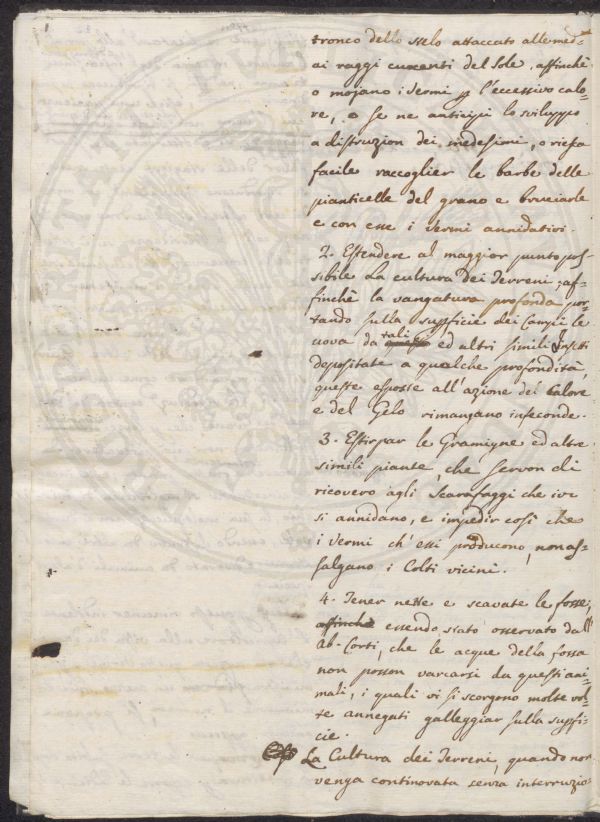 tronco dello stelo attaccato alle med-
ai raggi cuocenti del Sole, affinchè
o mojano i Vermi p l'eccessivo calo-
re, o se ne anticipi lo sviluppo
a distruzion dei medesimi, o riesca
facile raccoglier le barbe delle
pianticelle del grano e bruciarle
e con esse i Vermi annidativi.
2. Estendere al maggior punto pos-
sibile La cultura dei Terreni, af-
finchè la vangatura profonda por-
tando sulla supficie dei Campi le
uova da tali ed altri simili Insetti
depositate a qualche profondità,
queste esposte all'azione del Calore
e del Gelo rimangano infeconde.
3. Estirpar le Gramigne ed altre
simili piante, che servon di
ricovero agli Scarafaggi che ivi
si annidano, e impedir così che
i Vermi ch'essi producono, non as-
salgano i Colti vicini.
4. Tener nette e scavate le fosse,
affinchè essendo stato osservato dall'
Ab. Corti, che le acque della fossa
non posson varcarsi da questi ani-
mali, i quali vi si scorgono molte vol-
te annegati galleggiar sulla supfi-
cie.
La Cultura dei Terreni, quando non
venga continovata senza interruzio-